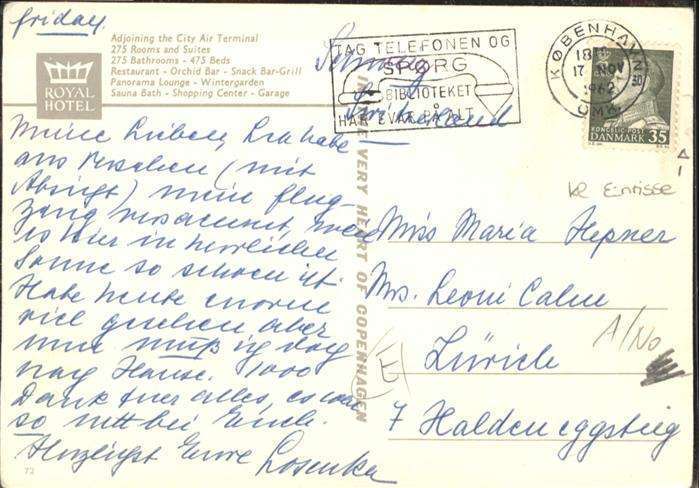 friday.
Adjoining the City Air Terminal
275 Rooms and Suites
275 Bathrooms - 475 Beds
Restaurant - Orchid Bar - Snack Bar-Grill
Panorama Lounge - Wintergarden
Sauna Bath - Shopping Center - Garage
ROYAL
HOTEL
Meine Lieben, Ich habe
aus Versehen (mit
Absicht) mein Flug-
zeug versäumt, weil
es hier in herrlichen
Sonne so schoen ist.
Habe heute enorm
viel gesehen aber
nun muß ich doch
nach Hause. 1000
Dank fuer alles, es war
so nett bei Euch.
Herzlichst Eure
72
IN THE VERY HEART OF COPENHAGEN
TAG TELEFONEN OG
SPØRG
BIBLIOTEKET
HAR SVAR PÅ ALT
KØBENHAVN
17 NOV
1962
OMK
KONGELIG POST
DANMARK 35
kl Einrisse
Miss Maria Hepner
Mrs. Leoni
Zürich
7 Haldeneggsteig
A/No
(E)